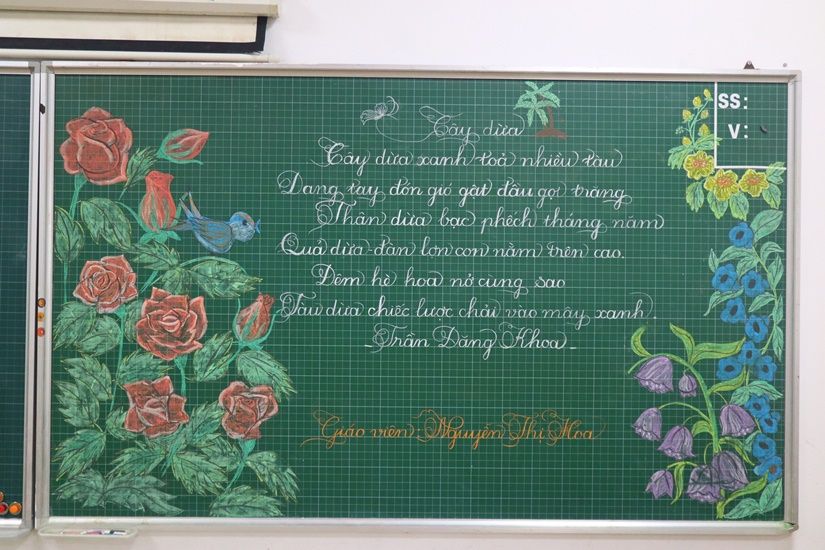 Cây dừa
Cây dừa xanh toả nhiều tàu
Dang tay đón gió gật đầu gọi trăng
Thân dừa bạc phếch tháng năm
Quả dừa-đàn lợn con nằm trên cao.
Đêm hè hoa nở cùng sao
Tàu dừa chiếc lược chải vào mây xanh.
-Trần Đăng Khoa-
Giáo viên: Nguyễn Thị Hoa
SS:
V: